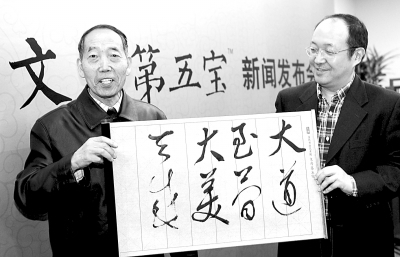 文
第五宝™ 新闻发布
大道
至简
大美